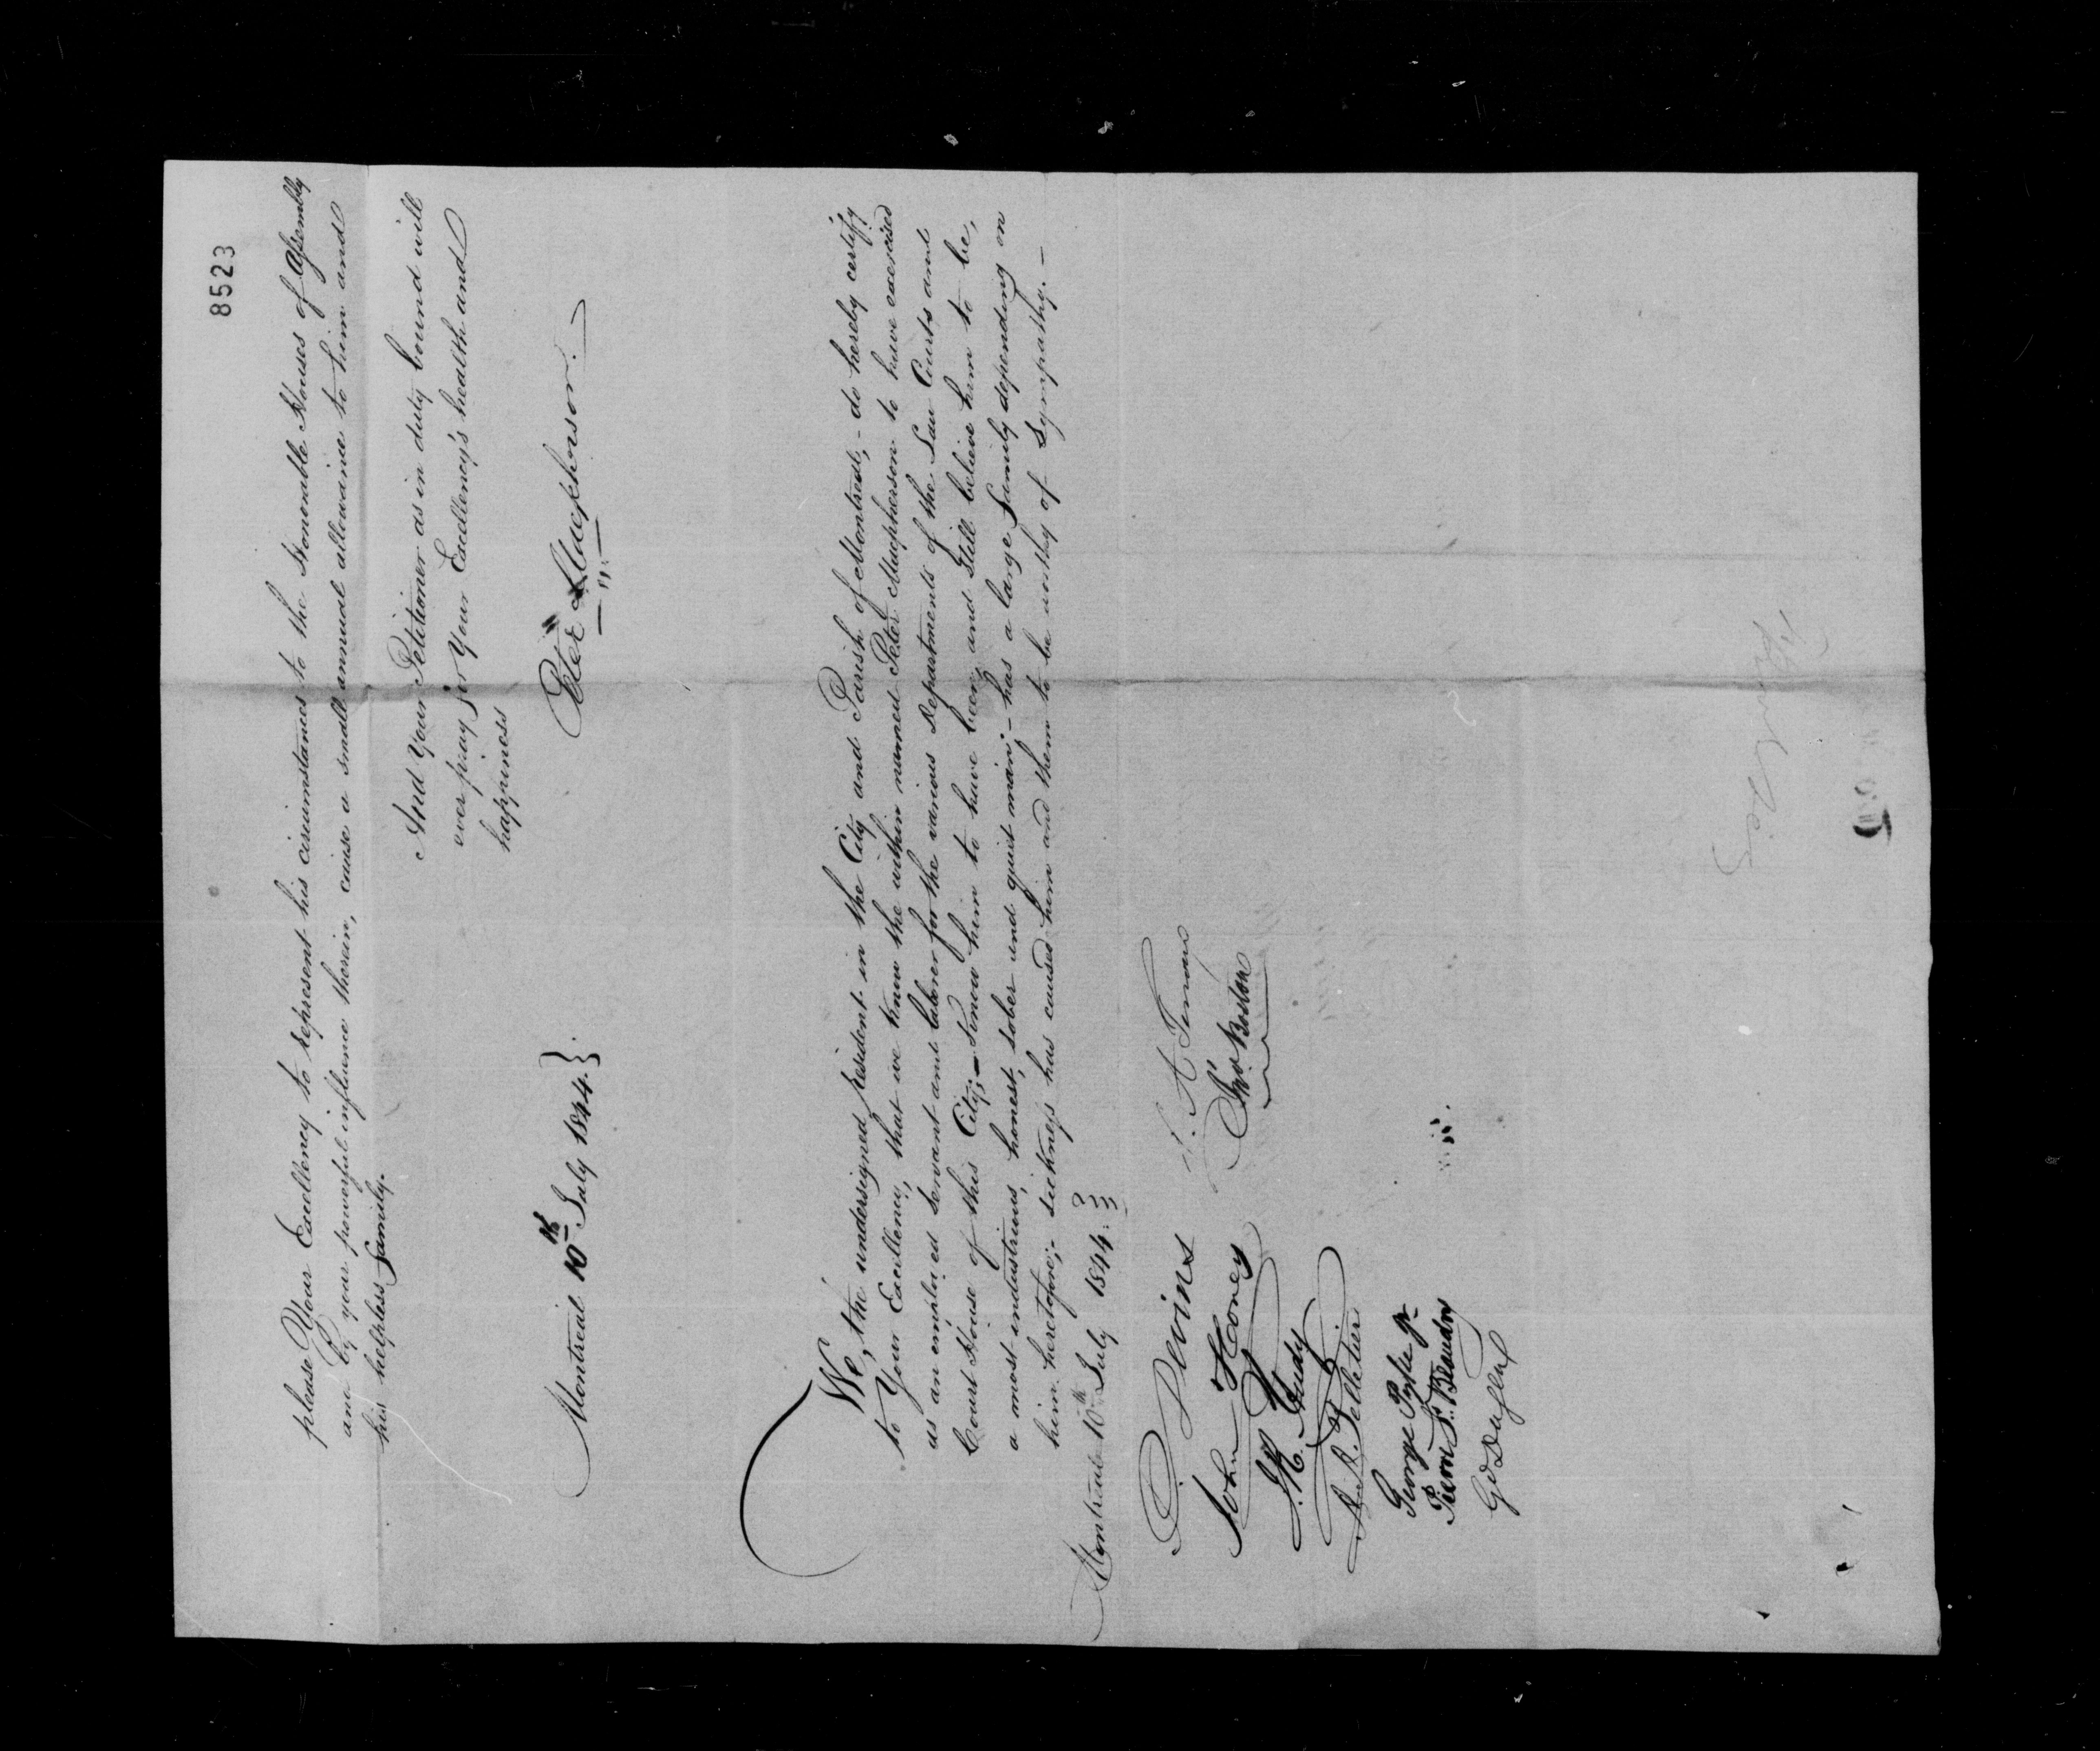 8523
please Your Excellency to represent his circumstances to the Honorable Houses of Assembly
and by your powerful influence therein, cause a small annual allowance to him and
his helpless family.
And Your Petitioner as in duty bound will
ever pray for Your Excellency's health and
happiness
Peter Macpherson.
Montreal 10th July 1844.
We, the undersigned resident in the City and Parish of Montreal, - do hereby certify
to Your Excellency, that we know the within named Peter Macpherson to have exercised
as an employed servant and laborer for the various Departments of the Law Courts and
Court House of this City; - Know him to have been, and still believe him to be,
a most industrious, honest, sober and quiet man; - has a large family depending on
him heretofore; - sickness has caused him and them to be worthy of Sympathy. -
Montreal 10th July 1844.
P. Devins
John Honey
Thos. Boston
George Pyke Jr
Pierre Beaudry